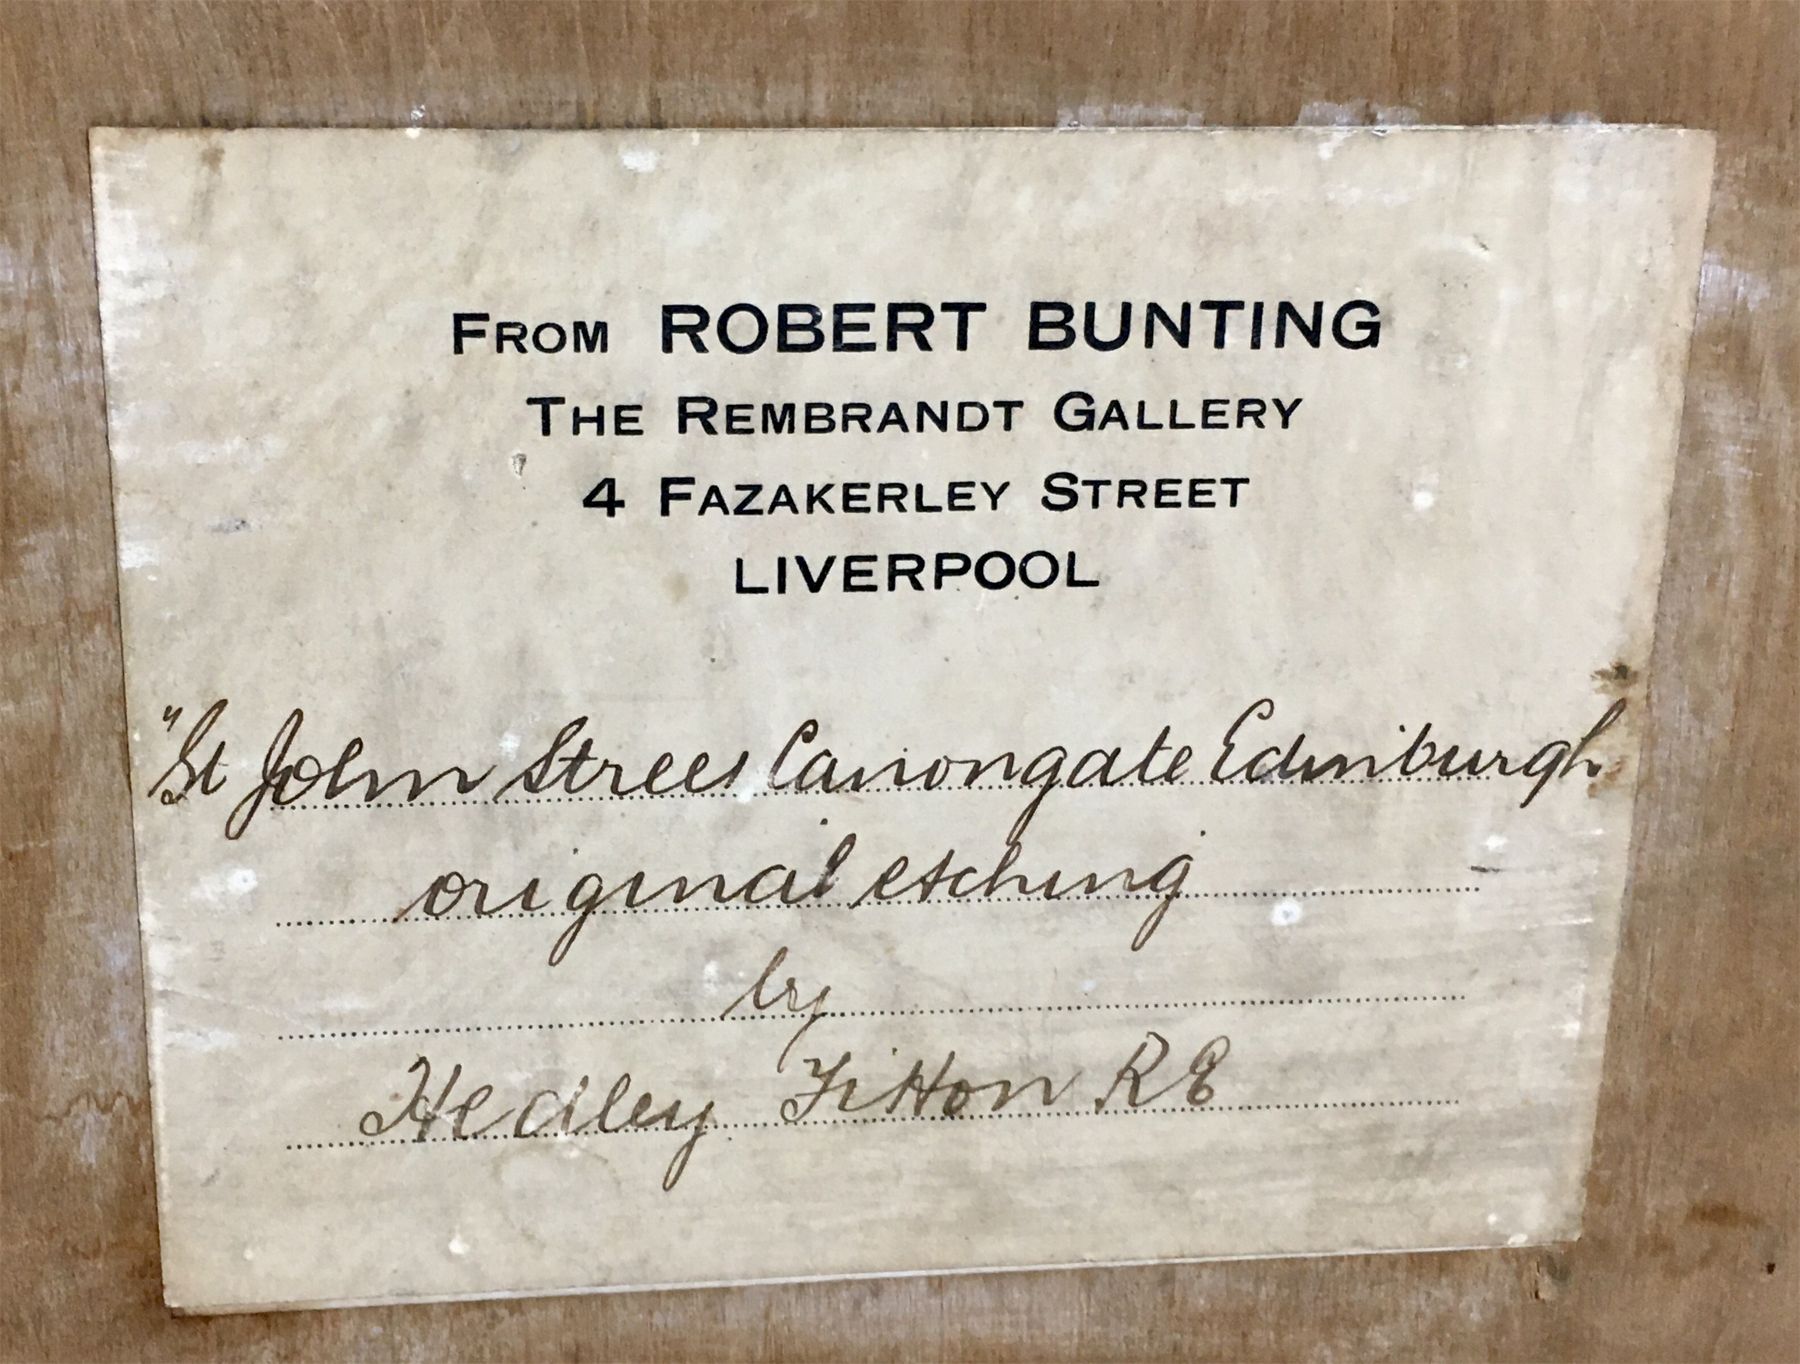 From ROBERT BUNTING
The Rembrandt Gallery
4 Fazakerley Street
LIVERPOOL
"St John Street Canongate Edinburgh
original etching
by
Hedley Fitton R E